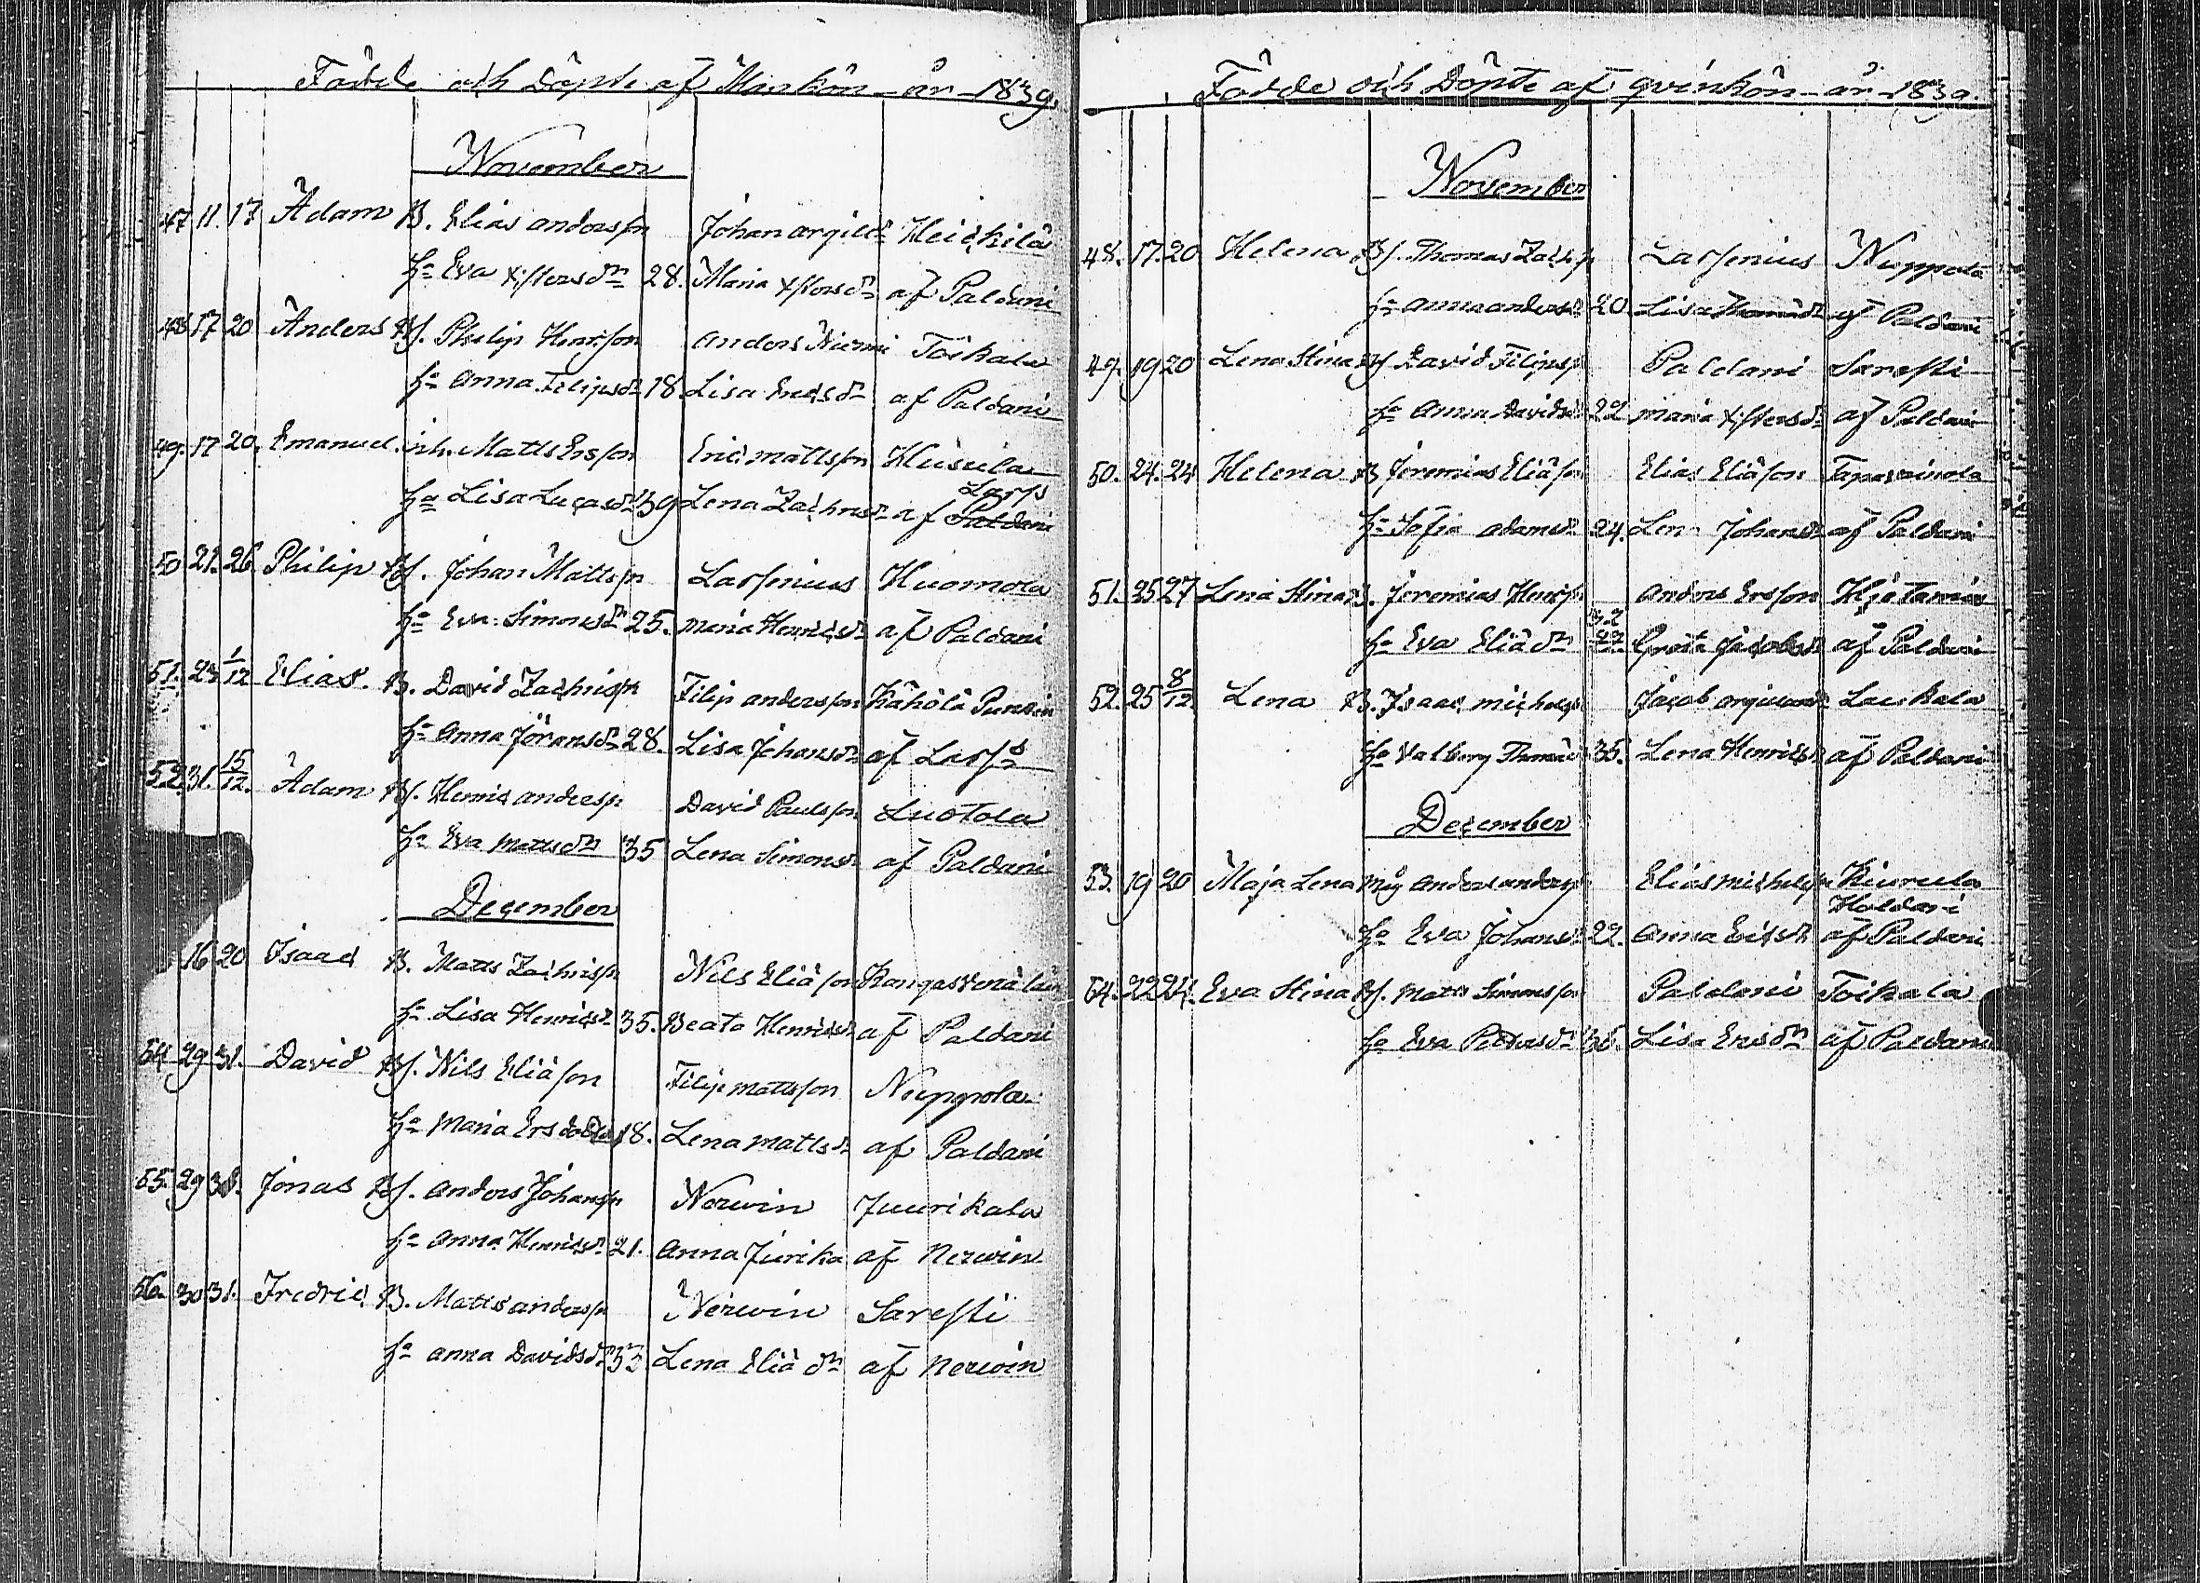 Födde och Döpte af Mankön år 1839.
November
47 11. 17 Adam B. Elias Andersson Johan Heickilä
hu Eva 28. Maria af Paldani
48 17 20 Anders Bs. Philip Henrson Anders Niemi Toikala
hu Anna Filipsdr 18 Lisa Ericsdr af Paldani
49. 17 20. Emanuel. inh. Matts Ersson Eric Mattsson
Lars
hu Lisa Lucasdr 39 Lena Zachrisdr af Paldani
50 21. 26 Philip Bs. Johan Mattsson Larsenius Huomola
hu Eva Simonsdr 25. Maria Henricsdr af Paldani
51. 1/12 Elias. B. David Zachrisson Filip Andersson Kähölä
hu Anna Jöransdr 28. Lisa Johansdr af Lars
52. 31. 15/12. Adam Bs. Henric Andersson David Paulsson Luotola
hu Eva Mattsdr 35 Lena Simonsdr af Paldani
December
16 20 Isaac B. Matts Zachrisson Nils Eliäson
hu Lisa Henricsdr 35. Beata Henricsdr af Paldani
54 29 31. David Bs. Nils Eliäson Filip Mattsson Nuppola
hu Maria Ersdotter 18. Lena Mattsdr af Paldani
55. 29 Jonas Bs. Anders Johansson Nerwin Juurikala
hu Anna Henricsdr 21. Anna Jurika af Nerwin
56. 30 31. Fredric B. Matts Andersson Nerwin Saressti
hu Anna Davidsdr 33 Lena Eliädr af Nerwin
Födde och Döpte af qvinkön år 1839.
November
48. 17. 20 Helena Bs. Thomas Larsenius Nuppola
hu Anna Andersdr 20. Lisa af Paldani
49. 19 20 Lena Stina Bs David Filipsson Paldani Saressti
hu Anna Davidsdr 22 Maria af Paldani
50. 24. 24 Helena B Jeremias Eliäson Elias Eliäson
hu Sofia Adamsdr 24. Lena Johansdr af Paldani
51. 25 27 Lena Stina B. Jeremias Henrson Anders Ersson
32
hu Eva Eliädr Greta Jacobsdr af Paldani
52. 25 8/12 Lena B. Isaac Michelsson Jacob Laukala
hu Valborg 35. Lena Henricsdr af Paldani
December
53. 19 20 Maja Lena Måg Anders Andersson Elias Michelsson Kiurula
Holdari
hu Eva Johansdr 22. Anna af Paldani
54. 22 24. Eva Stina Bs. Matts Simonsson Paldani Toikala
hu Eva Petersdr 36. Lisa Ersdr af Paldani